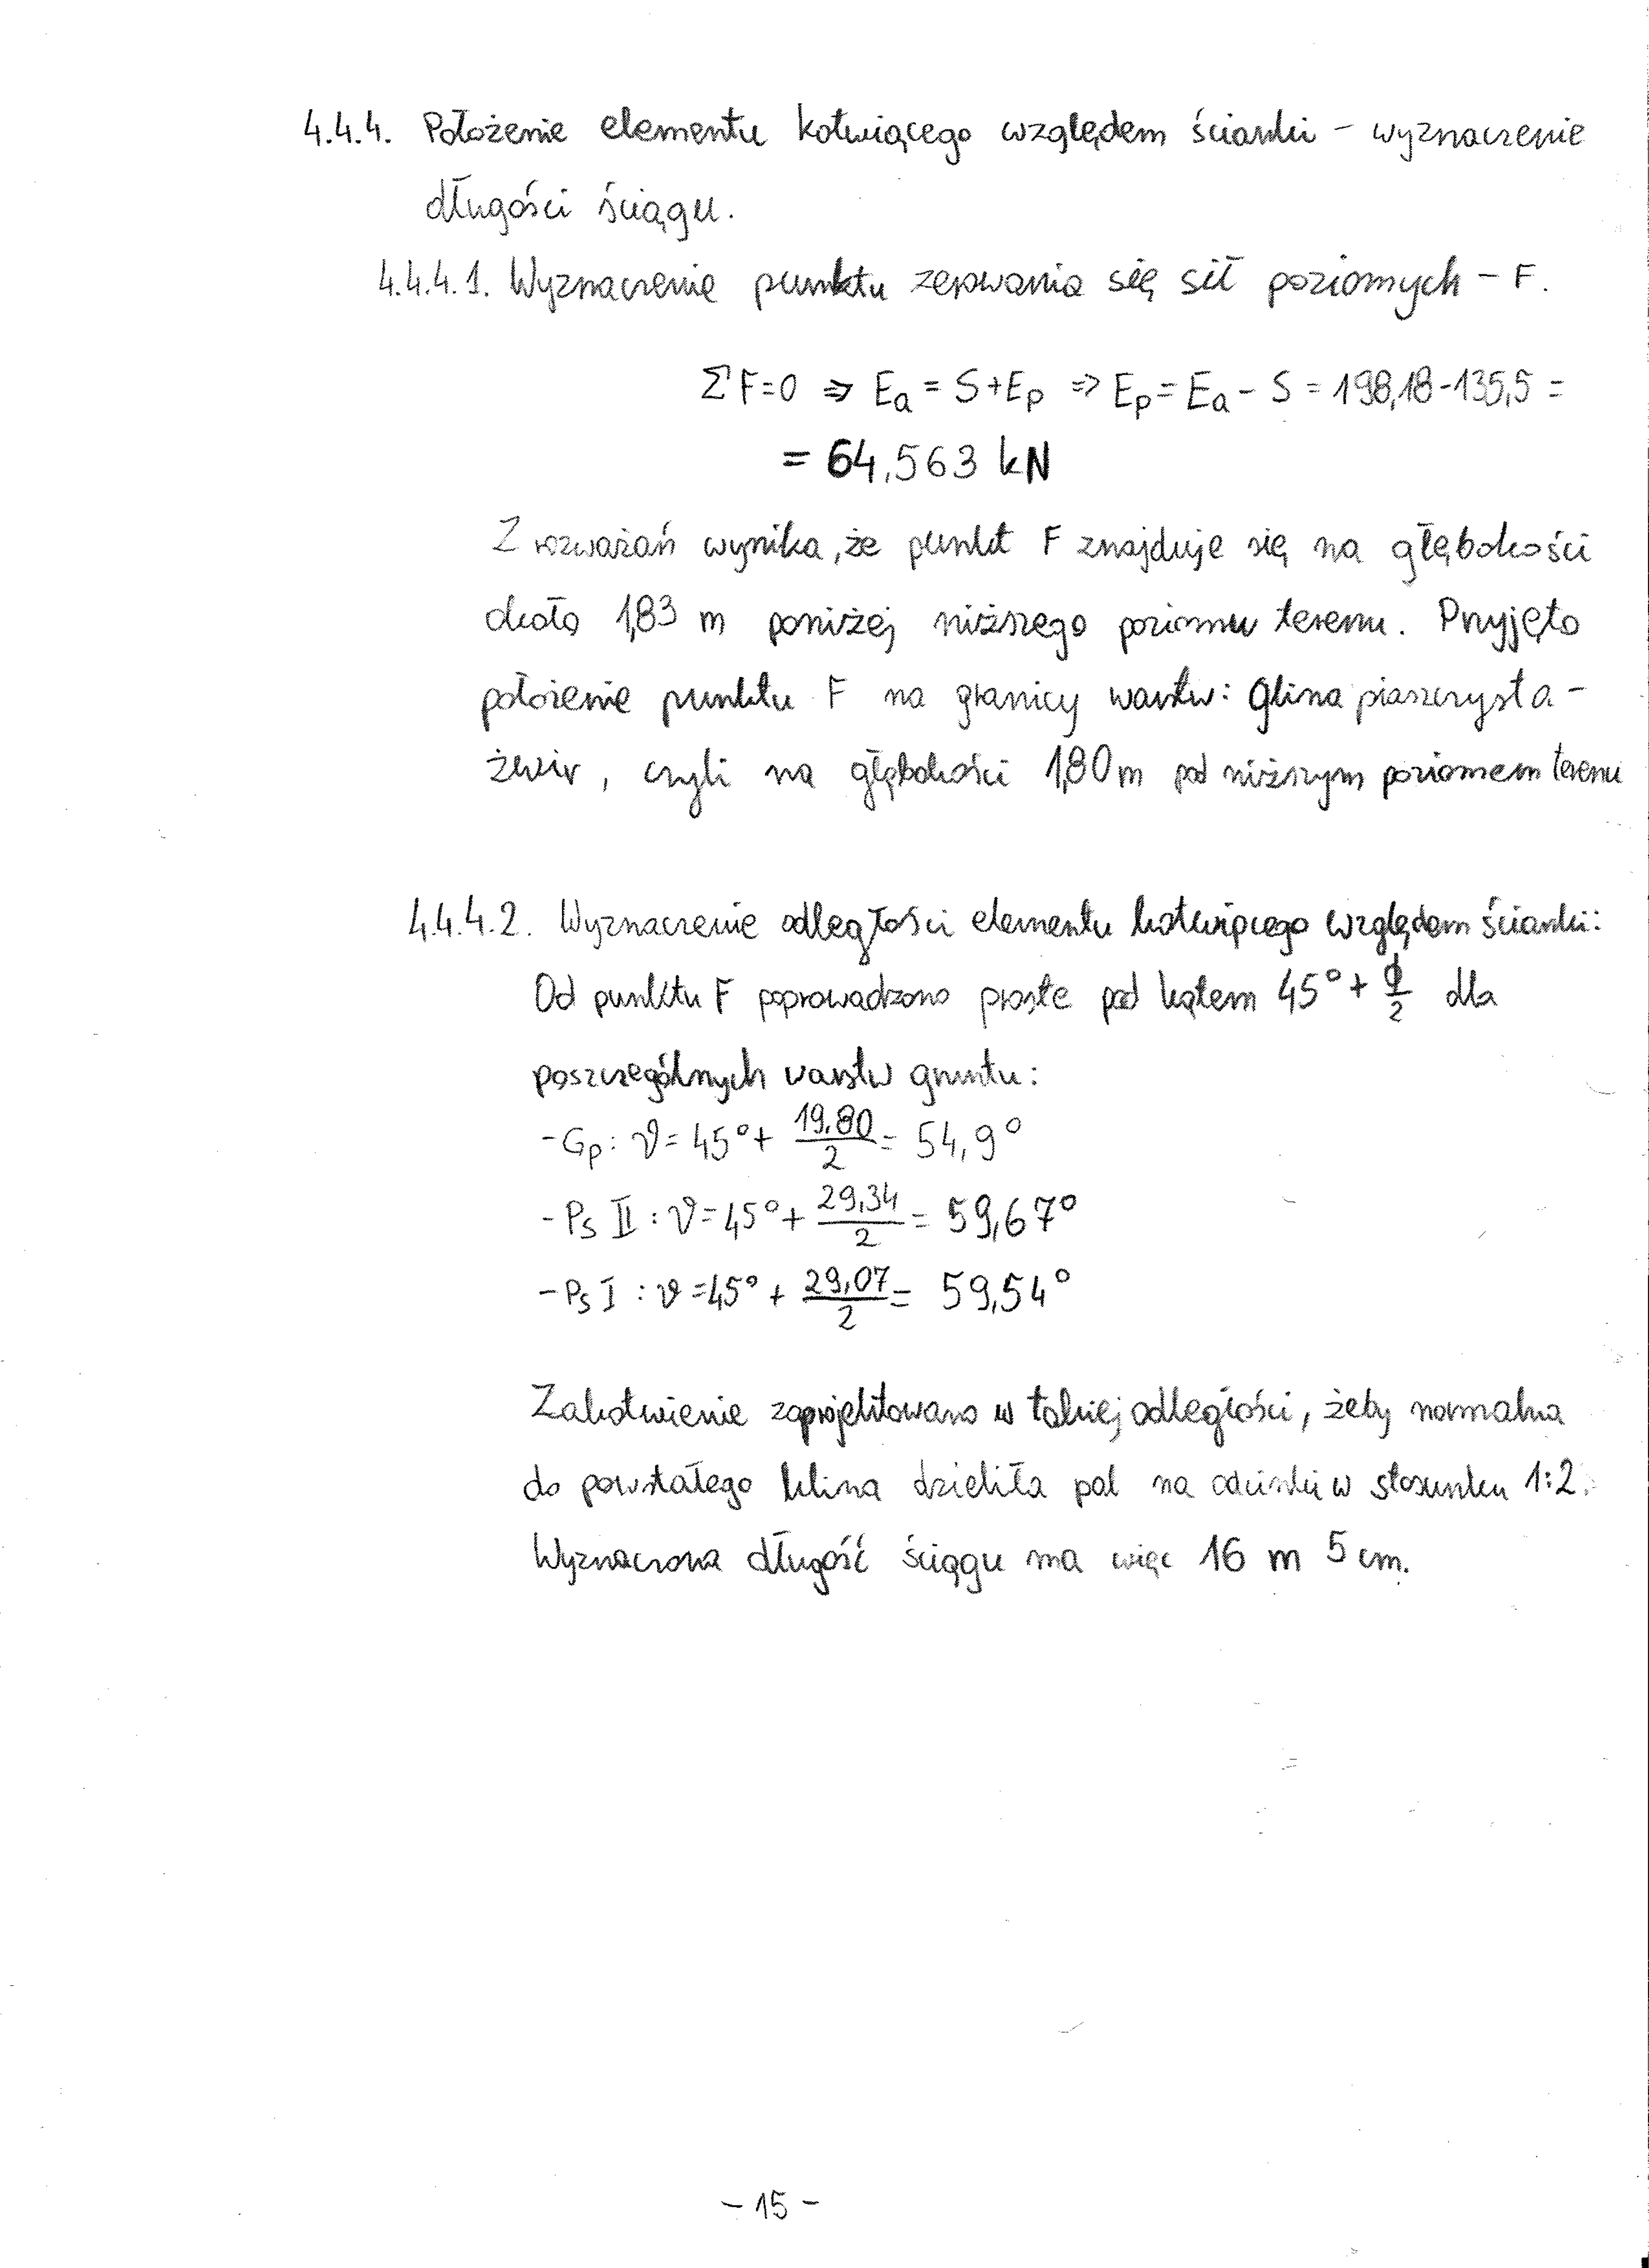 4.4.4. Położenie elementu kotwiącego względem ścianki - wyznaczenie
długości ściągu.
4.4.4.1. Wyznaczenie punktu zerowania się sił poziomych - F.
ΣF=0 => Ea = S+Ep => Ep = Ea - S = 198,18-135,5 =
= 64,563 kN
Z rozważań wynika, że punkt F znajduje się na głębokości
około 1,83 m poniżej niższego poziomu terenu. Przyjęto
położenie punktu F na granicy warstw: Glina piaszczysta -
żwir, czyli na głębokości 1,80m pod niższym poziomem terenu
4.4.4.2. Wyznaczenie odległości elementu kotwiącego względem ścianki:
Od punktu F poprowadzono proste pod kątem 45° + ϕ/2 dla
poszczególnych warstw gruntu:
- Gp: ϑ = 45° + 19,80/2 = 54,9°
- Ps II : ϑ = 45° + 29,34/2 = 59,67°
- Ps I : ϑ = 45° + 29,07/2 = 59,54°
Zakotwienie zaprojektowano w takiej odległości, żeby normalna
do powstałego klina dzieliła pal na odcinki w stosunku 1:2.
Wyznaczona długość ściągu ma więc 16 m 5 cm.
- 15 -